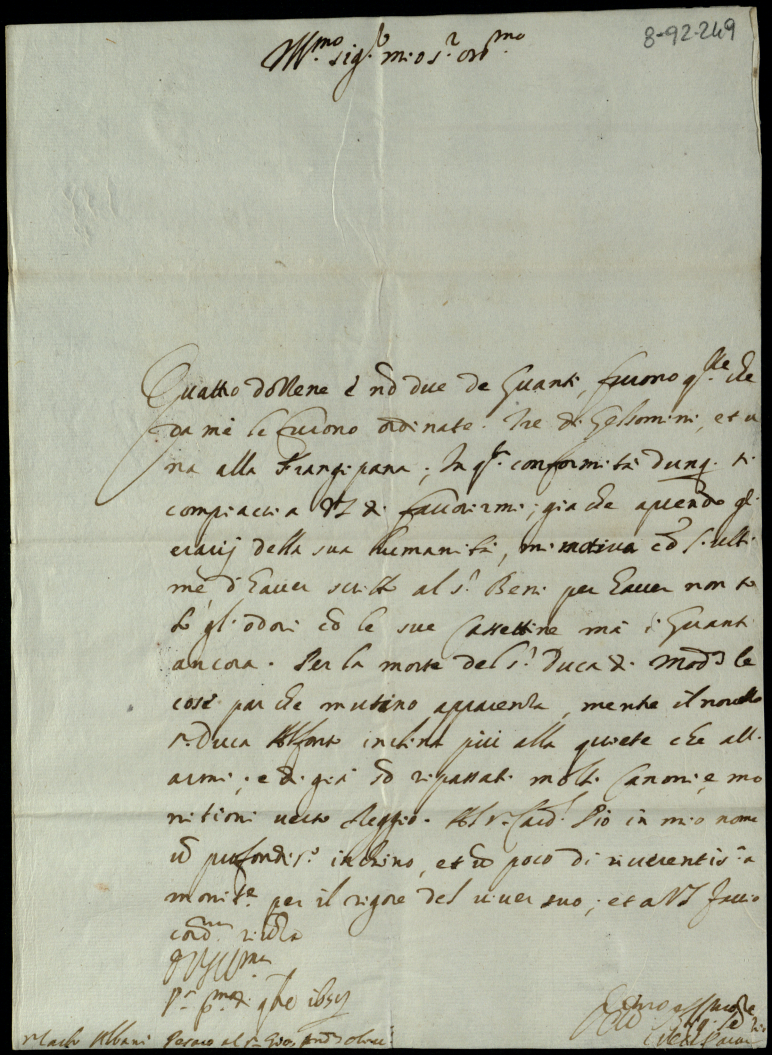 8-92-249
Ill.mo sig.r mio s.r oss.mo
Quattro dozzene e nō due de Guanti, furono q.lle che
da me le furono ordinate. Tre di Gelsomini, et u
na alla Frangipana; In q.ta conformità dunq. si
compiaccia VS di favorirmi; già che avendo gl'
erarij della sua humanità, mi motiva cō l'ulti
me d'haver scritto al s.r Beni per haver non so
lo gl'odori cō le sue cassettine mà i Guanti
ancora. Per la morte del s.r Duca di Mod.a le
cose par che mutino apparenza, mentre il novello
s.r Duca Alfonso inclina più alla quiete che all'
armi; e di già sō ripassati molti Canoni, e mo
nitioni verso Reggio. Al s.r Card. Pio in mio nome
ū profondis.o inchino, et ū poco di riverentis.a
monit.e per il rigore del viver suo; et a VS faccio
Di VS Ill.ma
s.r Carlo Albani Pesaro al s.r Gio.